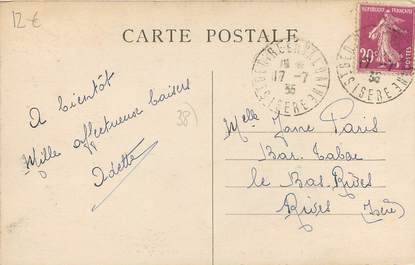 12 €
CARTE POSTALE
REPUBLIQUE FRANÇAISE
20c
POSTES
ISERE
17 - 7
35
A bientôt
Mille affectueux baisers
Odette
38)
Melle Jane Paris
Bar Tabac
le Bas-Rives
Rives (Isère)